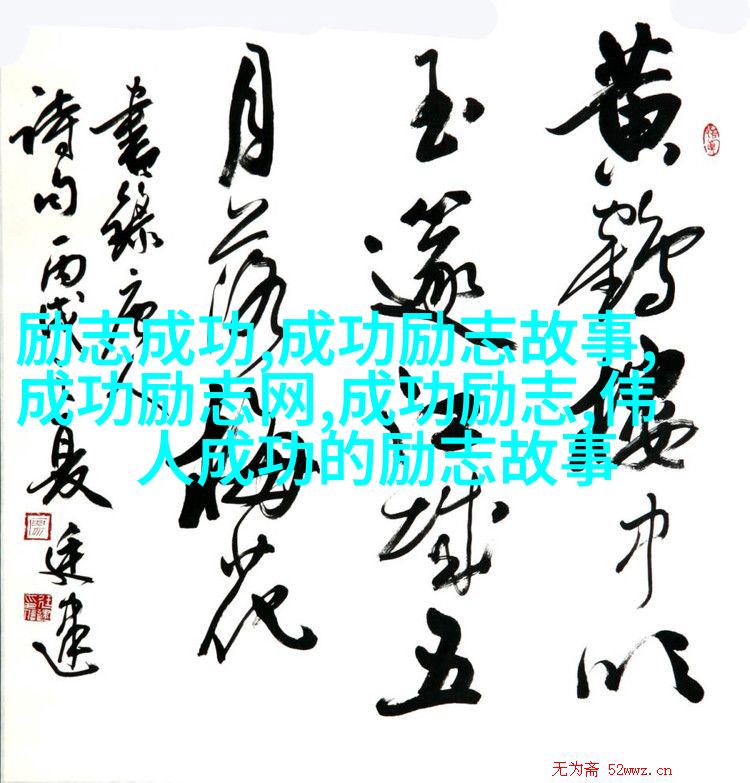 黄鶴樓中吹
玉篴江城五
月落梅花
書錄唐人
詩句丙戌夏
励志成功,成功励志故事,
成功励志网,成功励志,伟
人成功的励志故事
无为斋 52wwz.cn